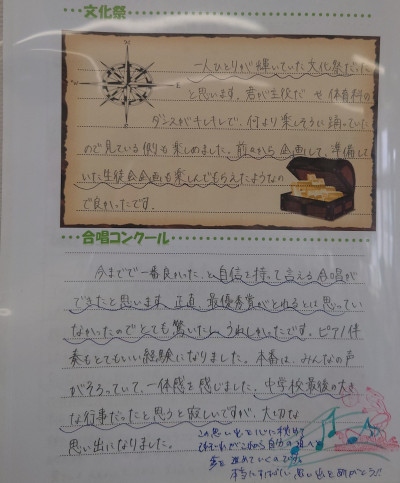 文化祭
一人ひとりが輝いていた文化祭だった
と思います。君が主役だ や 体育科の
ダンスがキレキレで、何より楽しそうに踊っていた
ので見ている側も楽しめました。前々から企画して、準備して
いた生徒会企画も楽しんでもらえたようなの
で良かったです。
合唱コンクール
今までで一番良かった、と自信を持って言える合唱が
できたと思います。正直、最優秀賞がとれるとは思ってい
なかったのでとても驚いたし、うれしかったです。ピアノ伴
奏もとてもいい経験になりました。本番は、みんなの声
がそろっていて、一体感を感じました。中学校最後の大き
な行事だったと思うと寂しいですが、大切な
思い出になりました。
この思い出を心に秘めて
それぞれがこれから自分の道へと
歩を進めていくのですね。
本当にすばらしい思い出をありがとう!!